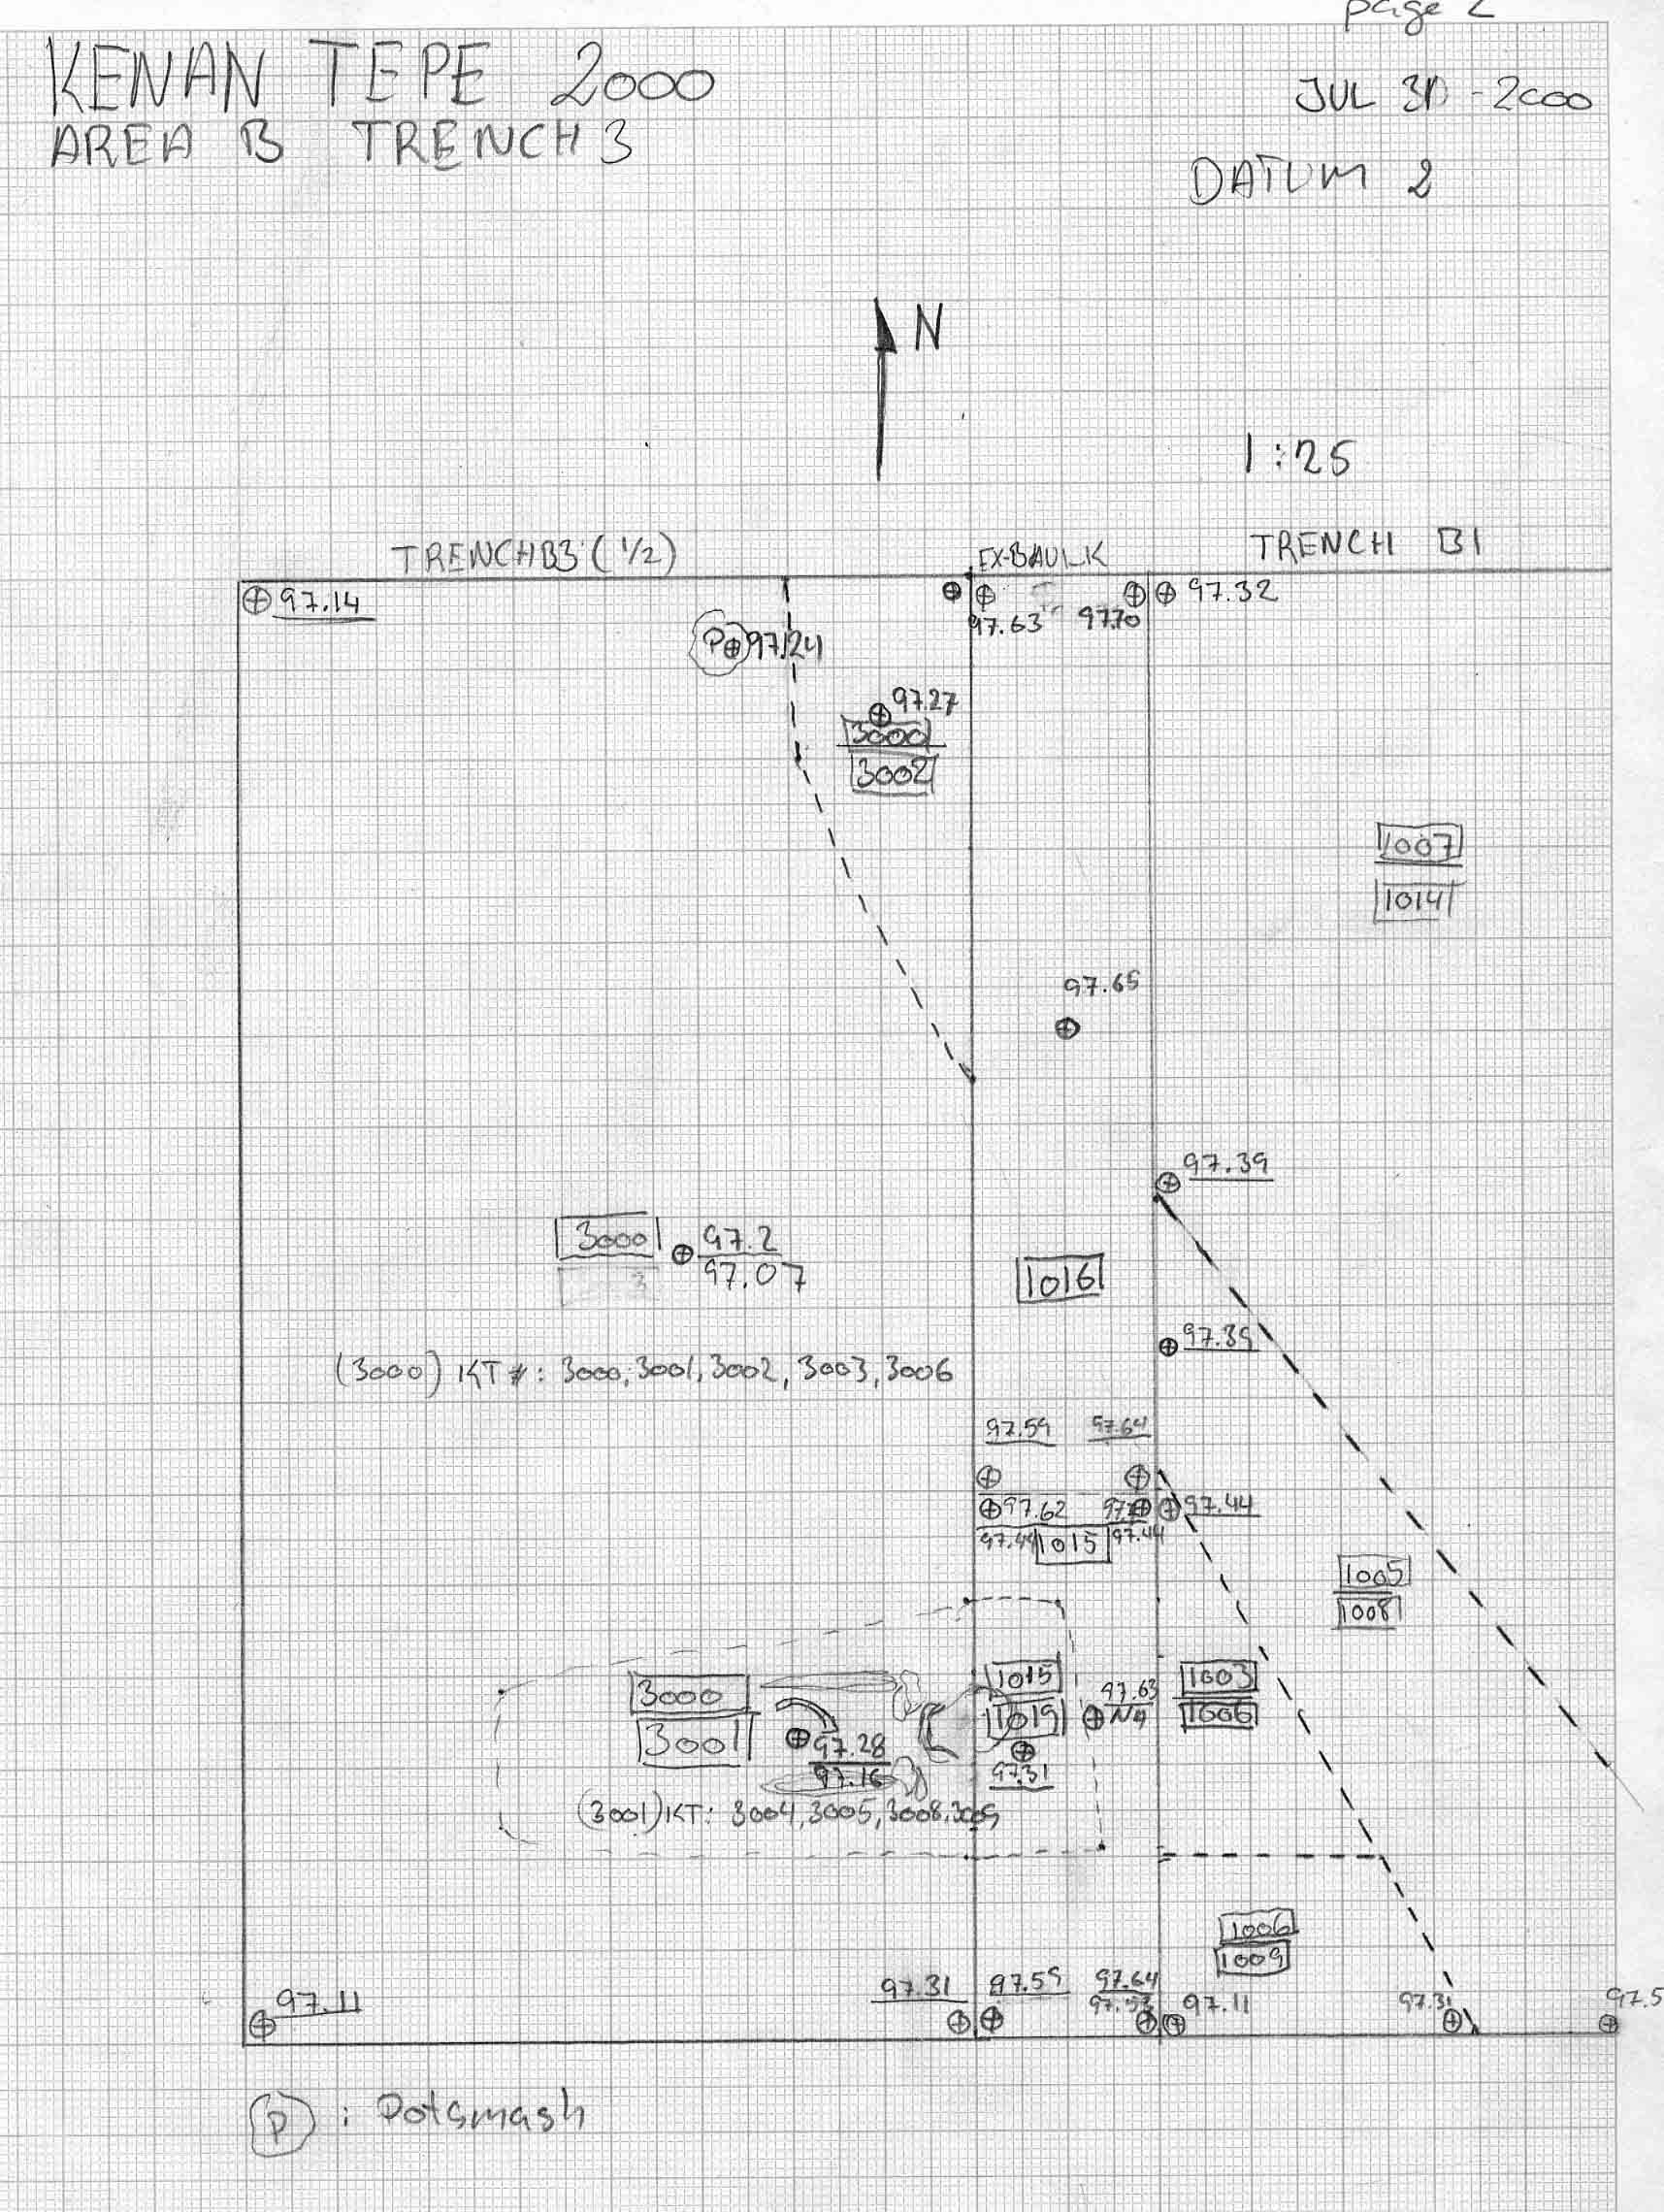 page 2
KENAN TEPE 2000
JUL 30 - 2000
AREA B TRENCH 3
DATUM 2
N
1:25
TRENCH B3 (1/2)
EX-BAULK
TRENCH B1
97.14
97.63
97.70
97.32
P 97.24
97.27
3000
3002
1007
1014
97.65
97.39
3000
97.2
97.07
1016
97.39
(3000) KT #: 3000, 3001, 3002, 3003, 3006
97.59
97.64
97.62
97.44
97.44
1015
97.44
1005
1008
3000
3001
97.28
97.16
1015
1019
97.31
97.63
NA
1003
1006
(3001) KT: 3004, 3005, 3008, 3009
1006
1009
97.11
97.31
97.59
97.64
97.11
97.31
97.5
P : Potsmash